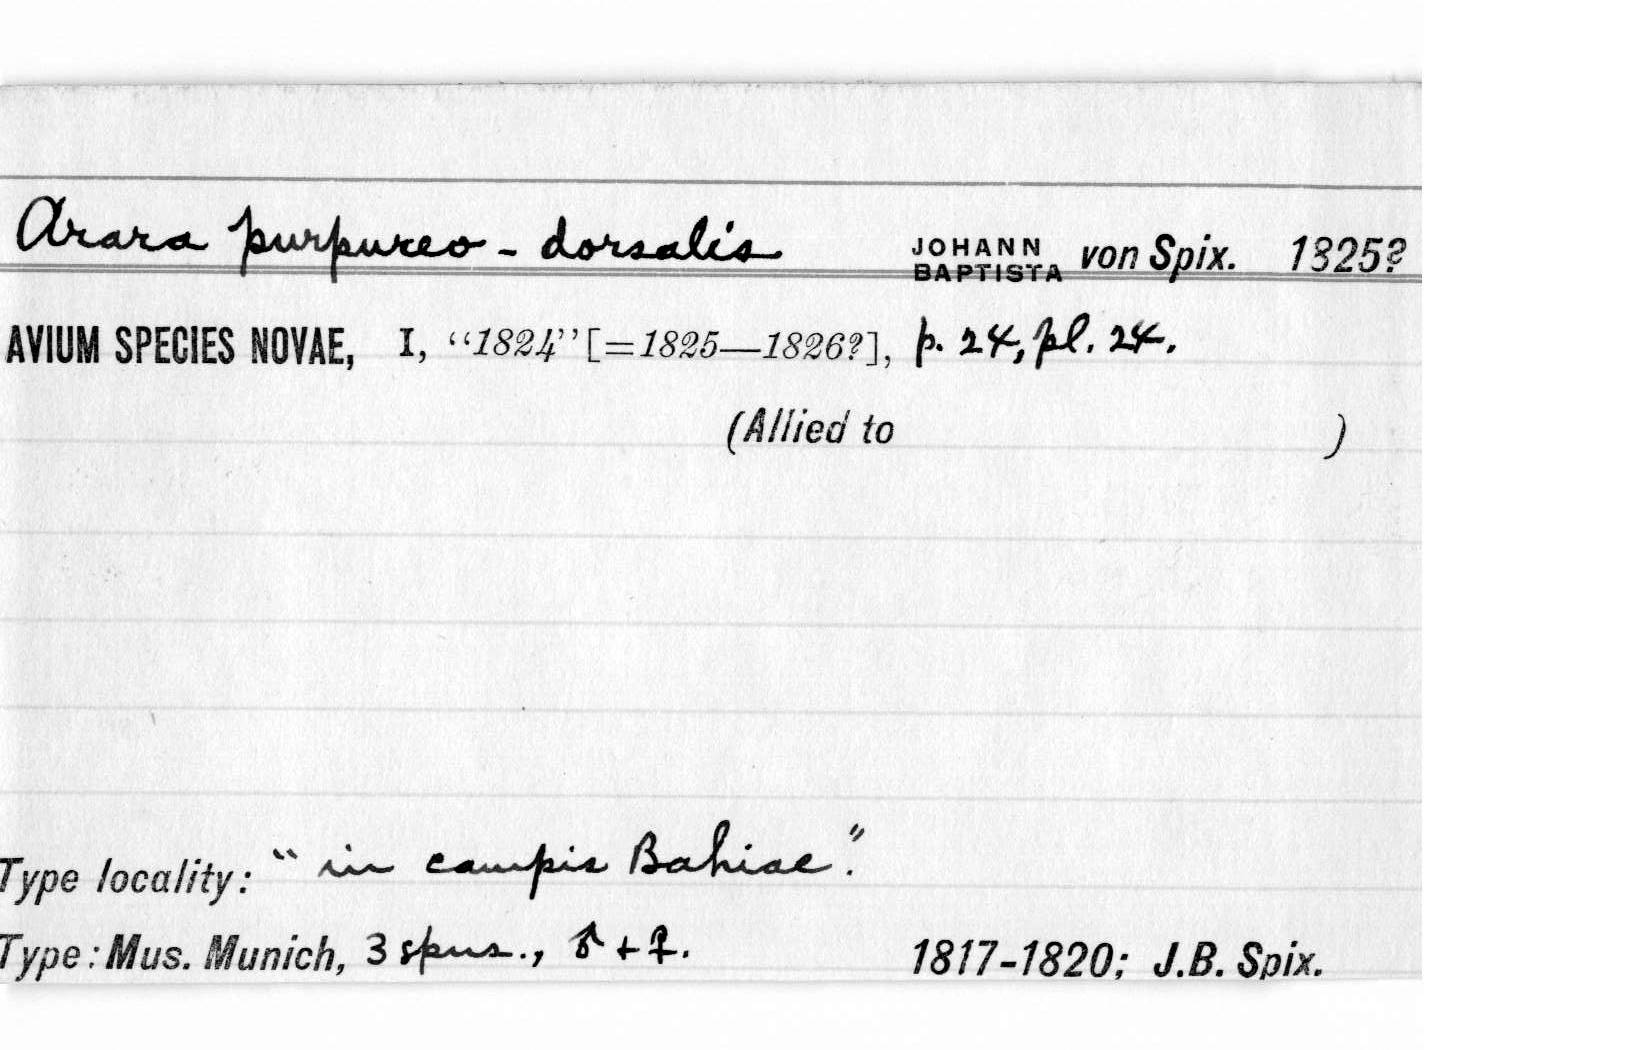 Arara purpureo-dorsalis JOHANN BAPTISTA von Spix. 1825?
AVIUM SPECIES NOVAE, I, “1824” [=1825—1826?], p. 24, pl. 24.
(Allied to )
Type locality: “in campis Bahiae”.
Type: Mus. Munich, 3 spms., ♂ + ♀. 1817-1820; J.B. Spix.